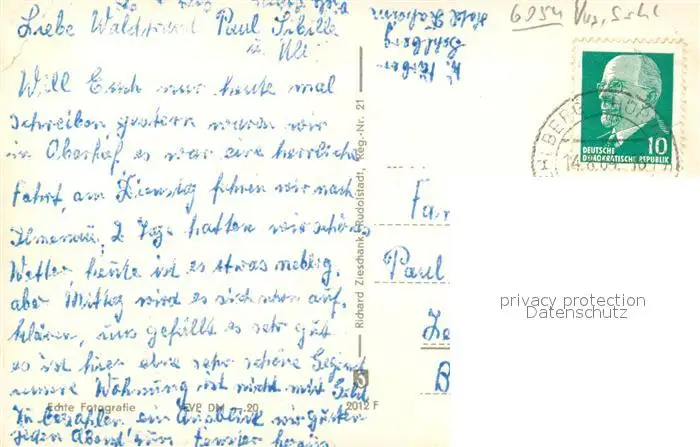 Liebe Waldtraud Paul Sibille
u. Uli
Will Euch nur heute mal
schreiben gestern waren wir
in Oberhof, es war eine herrliche
Fahrt, am Dienstag fuhren wir nach
Ilmenau, 2 Tage hatten wir schönes
Wetter, heute ist es etwas neblig,
aber Mittag wird es sich schon auf-
klären, uns gefällt es sehr gut
es ist hier eine sehr schöne Gegend
unsere Wohnung ist nicht mit Geld
zu bezahlen ein Ausblick wir gucken
jeden Abend zum Fenster heraus
Echte Fotografie EVP DM -.20 2012 F
Richard Zieschank, Rudolstadt, Reg.-Nr. 21
6054 Suhl
10
DEUTSCHE
DEMOKRATISCHE REPUBLIK
Fam
Paul
B
privacy protection
Datenschutz